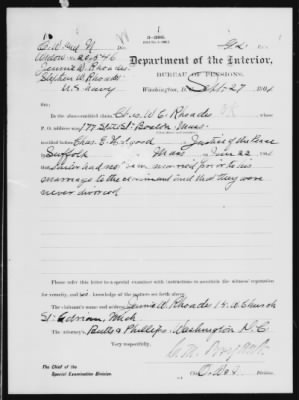 3—286.
Department of the Interior,
BUREAU OF PENSIONS,
Washington, D. C., Sept. 27 1904
Widow
Jennie W. Rhoades
Stephen W. Rhoades
U.S. Navy
Sir:
In the above-entitled claim Chas. W. C. Rhoades
P. O. address 177 State St. Boston Mass.
testified before Chas. G. Justice of the Peace
Suffolk Mass June 22
that sailor had not been married prior to his
marriage to the claimant and that they were
never divorced.
Please refer this letter to a special examiner with instructions to ascertain the witness' reputation
for veracity and knowledge of the matters set forth above.
The claimant's name and address Jennie W. Rhoades Church
St. Adrian, Mich
The attorneys, Butts & Phillips, Washington D. C.
Very respectfully,
The Chief of the
Special Examination Division.